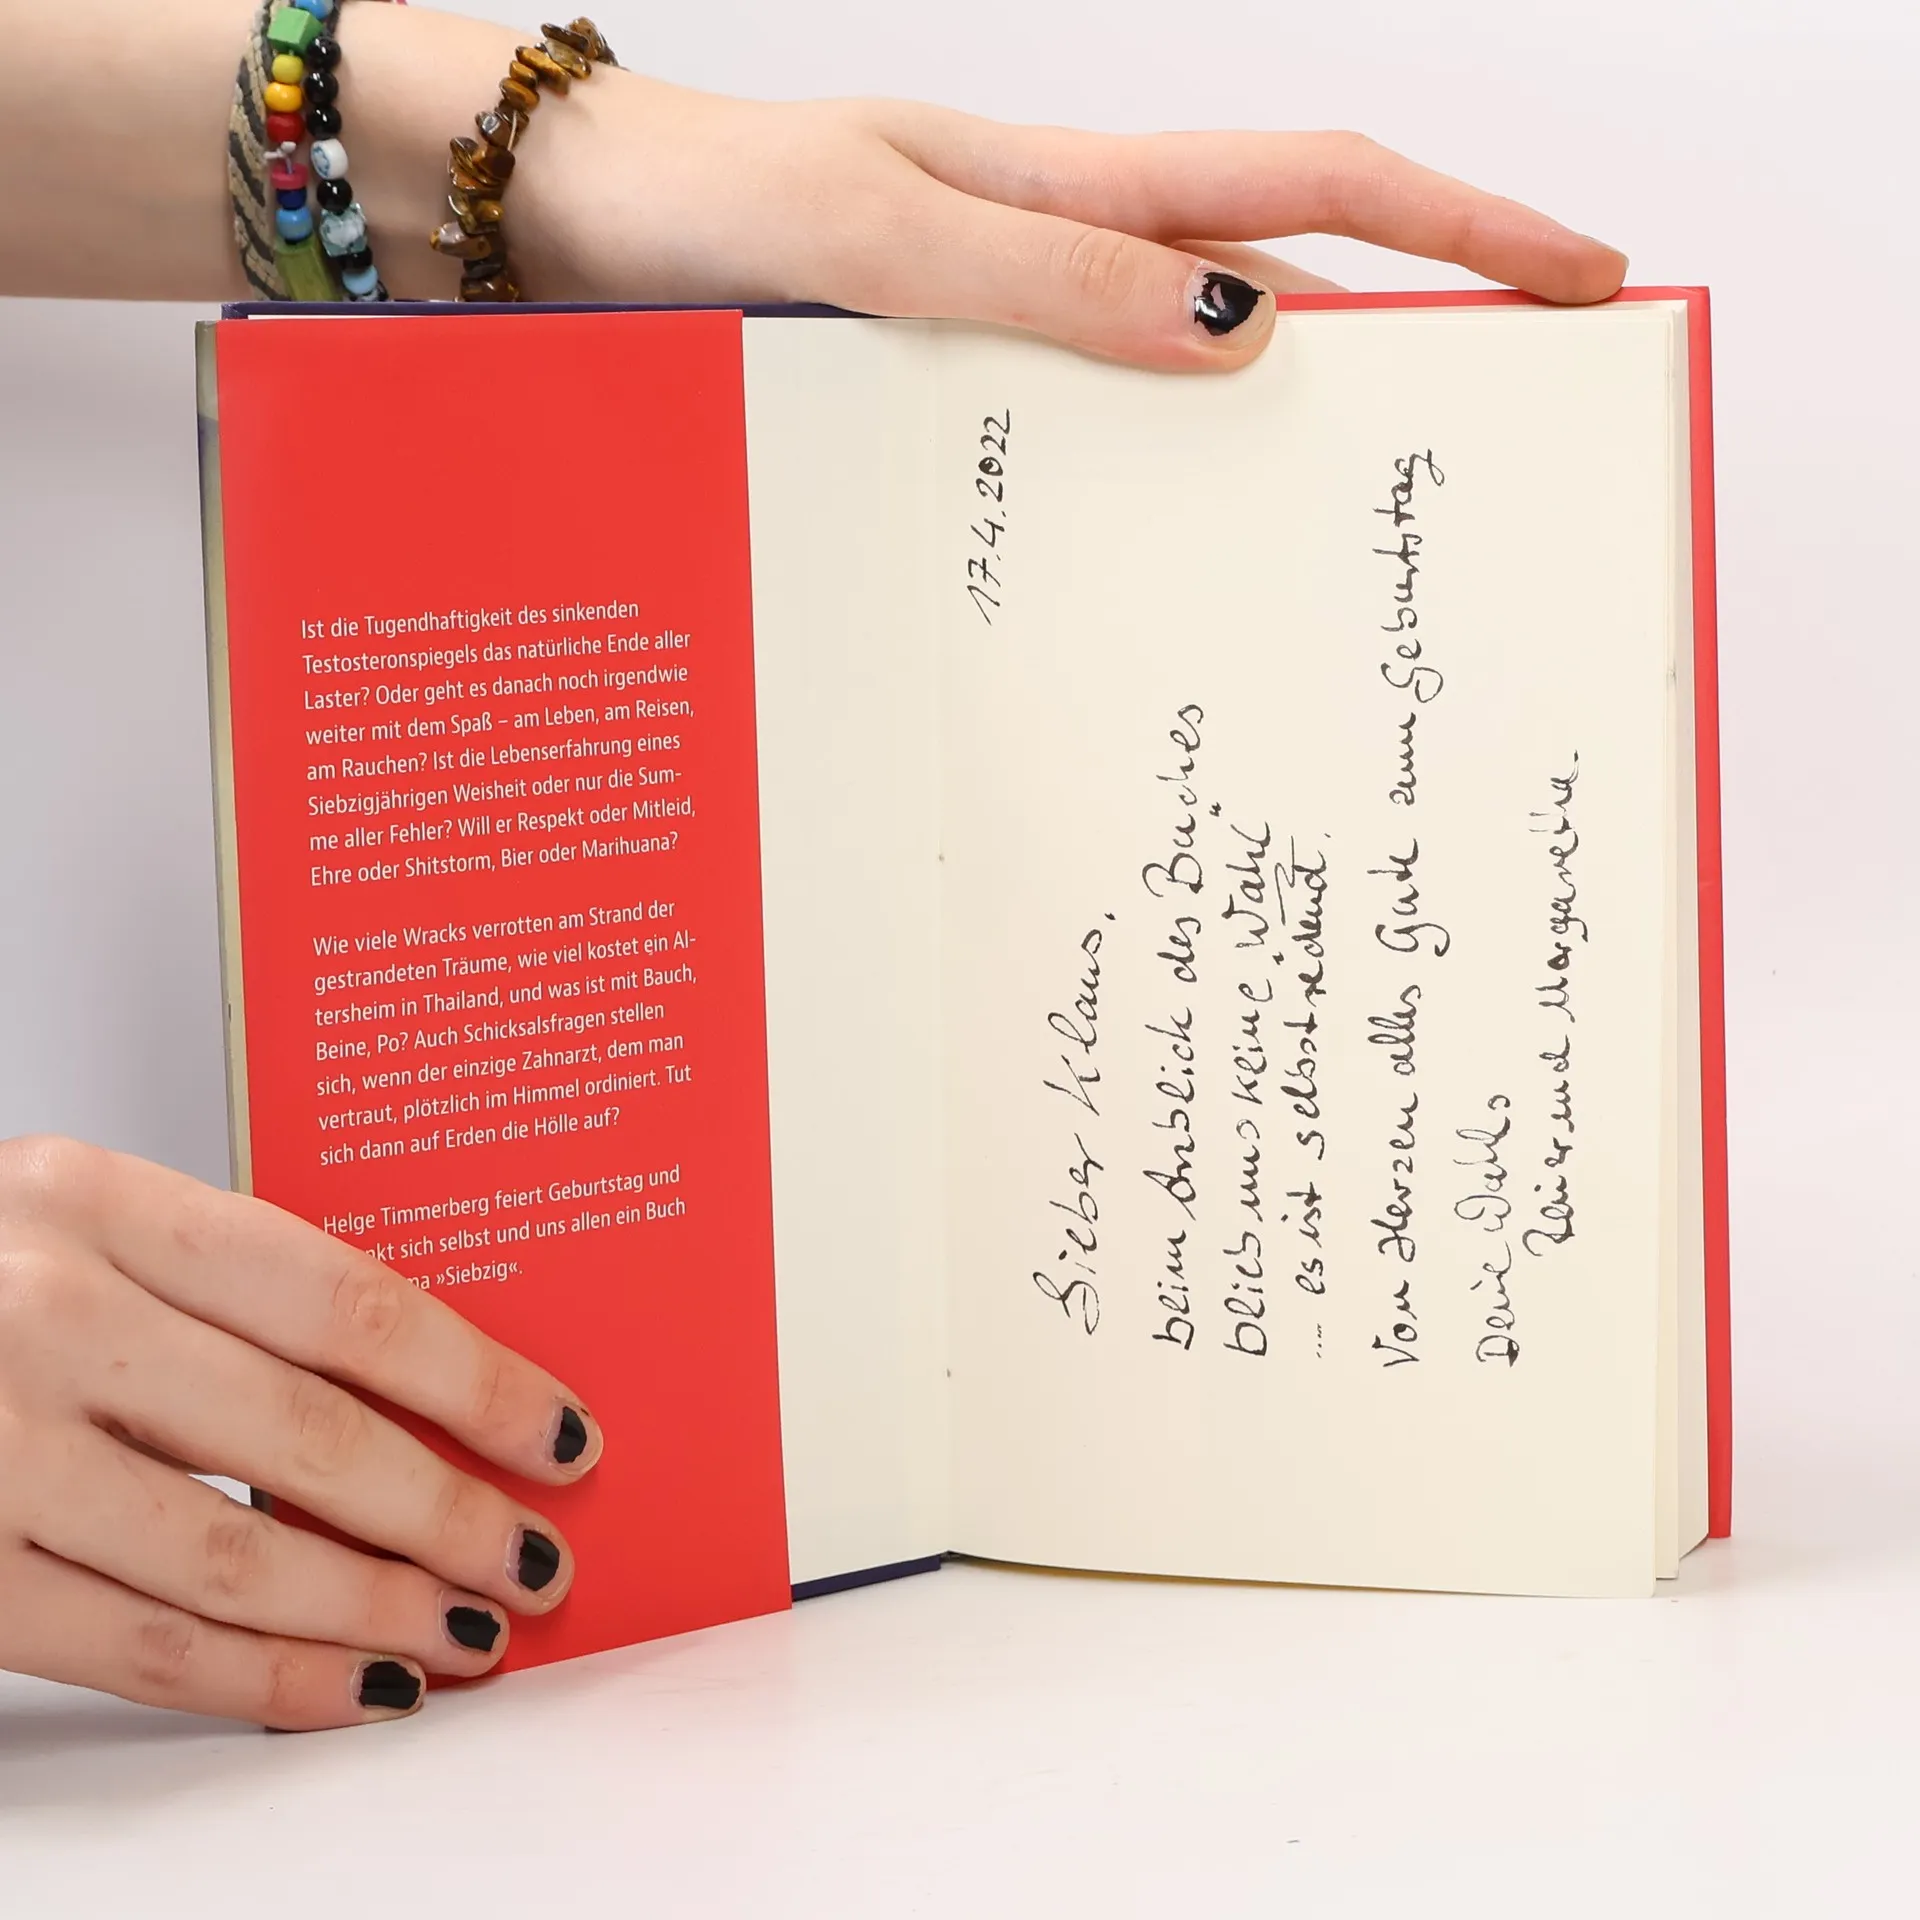 Ist die Tugendhaftigkeit des sinkenden
Testosteronspiegels das natürliche Ende aller
Laster? Oder geht es danach noch irgendwie
weiter mit dem Spaß – am Leben, am Reisen,
am Rauchen? Ist die Lebenserfahrung eines
Siebzigjährigen Weisheit oder nur die Sum-
me aller Fehler? Will er Respekt oder Mitleid,
Ehre oder Shitstorm, Bier oder Marihuana?
Wie viele Wracks verrotten am Strand der
gestrandeten Träume, wie viel kostet ein Al-
tersheim in Thailand, und was ist mit Bauch,
Beine, Po? Auch Schicksalsfragen stellen
sich, wenn der einzige Zahnarzt, dem man
vertraut, plötzlich im Himmel ordiniert. Tut
sich dann auf Erden die Hölle auf?
Helge Timmerberg feiert Geburtstag und
nkt sich selbst und uns allen ein Buch
ma »Siebzig«.
17.4.2022
Lieber Klaus,
beim Anblick des Buches
blieb uns keine „Wahl"
.... es ist selbstredend.
Von Herzen alles Gute zum Geburtstag
Deine Wahls
und Margaretha.